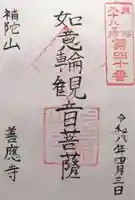 第四十番
令和八年四月三日
如意輪観音菩薩
補陀山
善應寺